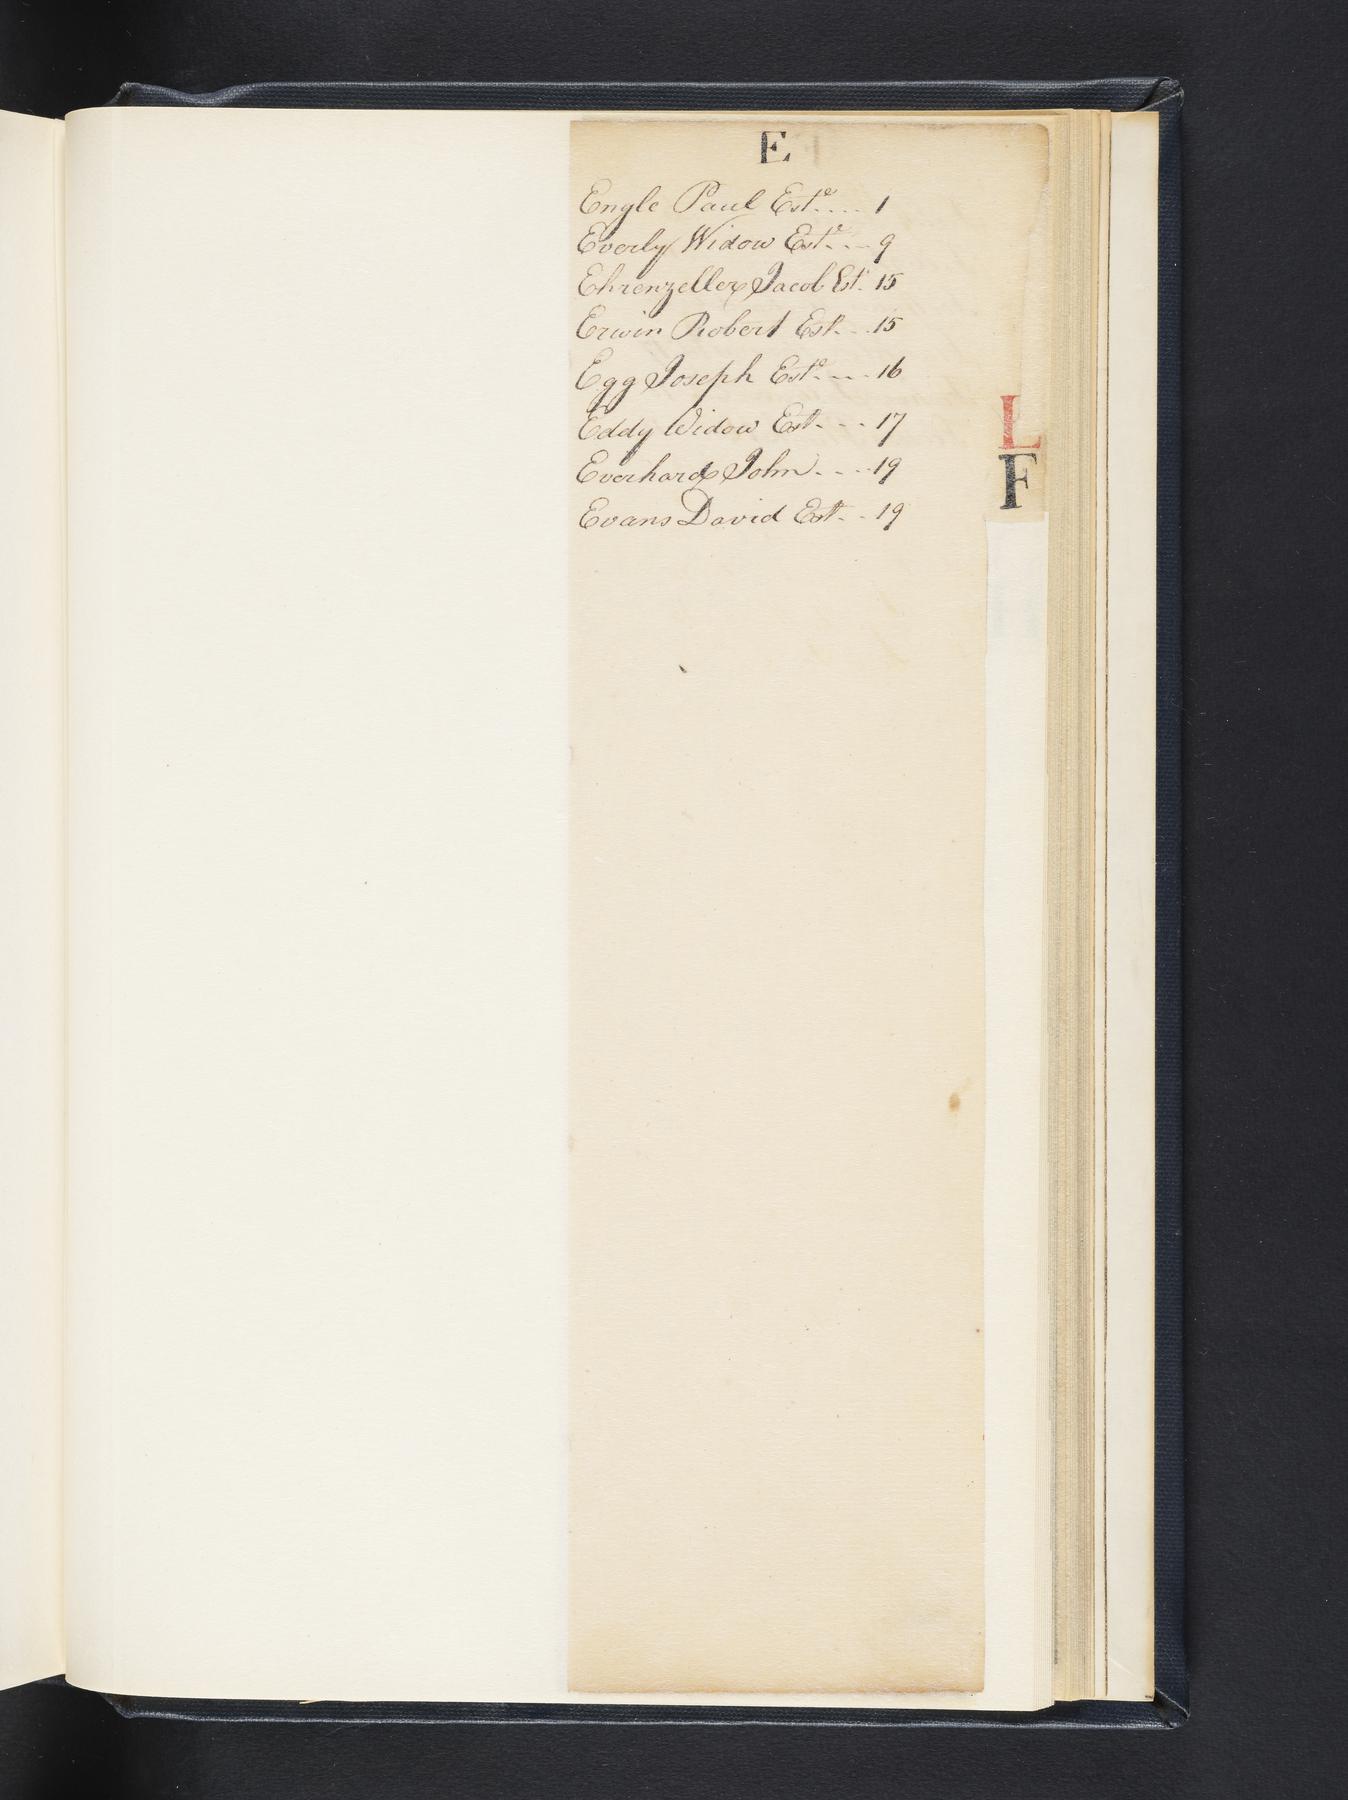 E
Engle Paul Este.... 1
Everly Widow Este... 9
Ehrenzeller Jacob Est. 15
Erwin Robert Est...15
Egg Joseph Este....16
Eddy Widow Est....17
Everhard John....19
Evans David Est...19
L
F